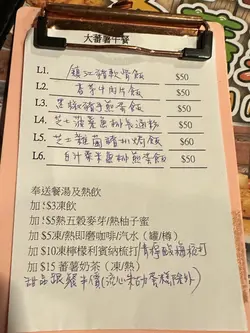 大蕃薯午餐
L1. 鎮江豬軟骨飯 $50
L2. 青芽牛肉片飯 $50
L3. 黑椒豬手煎蛋飯 $50
L4. 芝士菠菜魚柳 通粉 $50
L5. 芝士雜菌豬扒焗飯 $60
L6. 白汁粟米魚柳煎蛋飯 $50
奉送餐湯及熱飲
加 $3凍飲
加 $5熱五穀麥芽/熱柚子蜜
加 $5凍/熱即磨咖啡/汽水（罐/樽）
加 $10凍檸檬利賓納梳打/青檸 梅梳打
加 $15 蕃薯奶茶（凍/熱）
甜品跟餐半價（流心朱古力蛋糕除外）